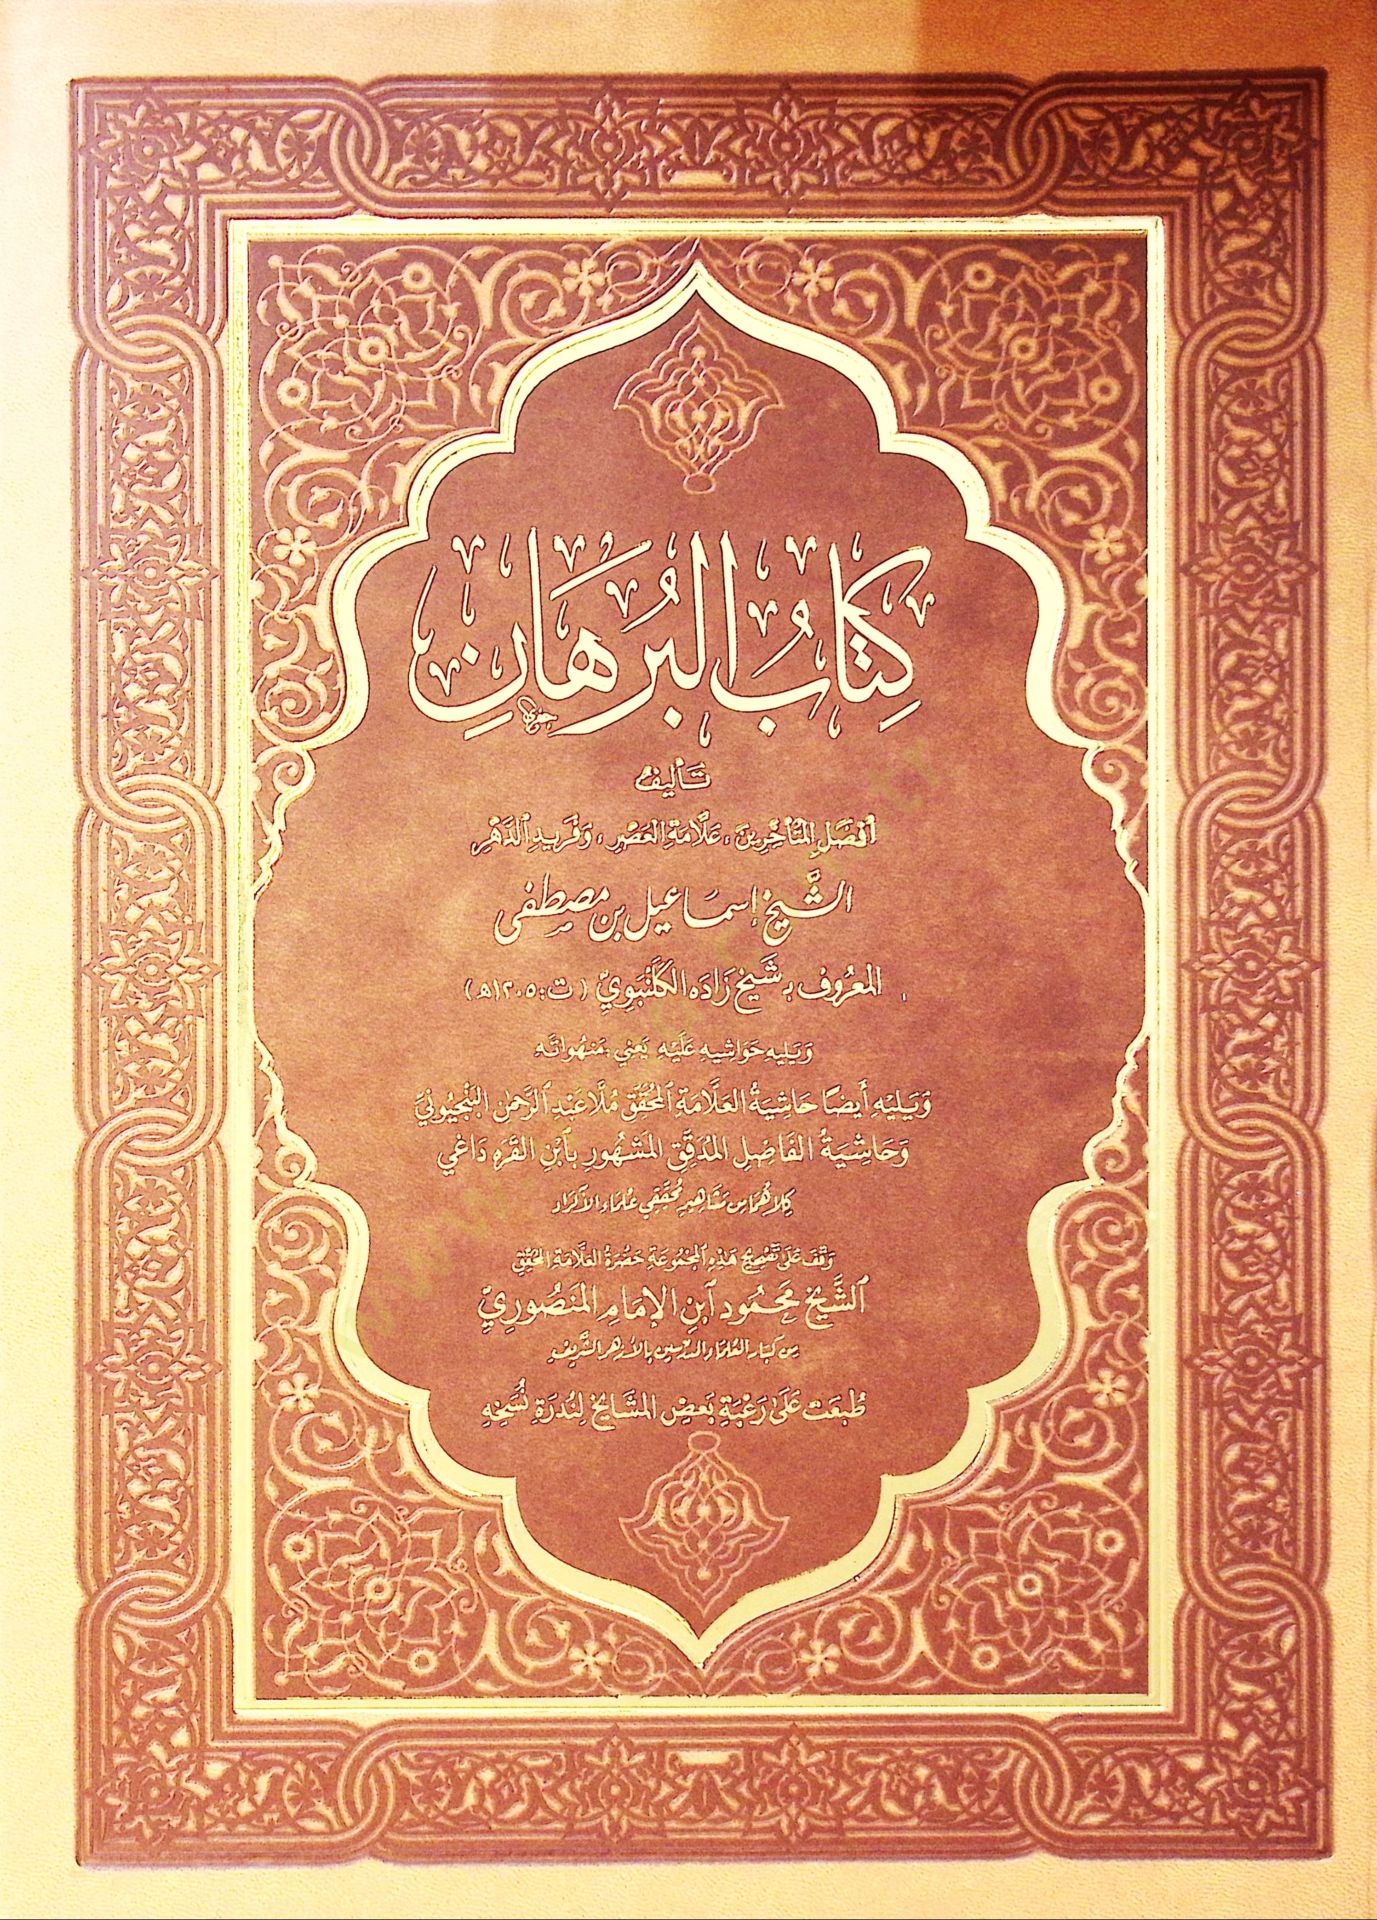 كِتَابُ البُرهَانِ
تَأليفُ
أفضَلِ المُتَأخِّرِينَ، عَلَّامَةِ العَصْرِ، وَفَرِيدِ الدَّهْرِ
الشَّيخ إسماعيل بن مصطفى
المعرُوف بـ شَيخ زَادَه الكَلَنْبَوِيّ (ت: ١٢٠٥هـ)
وَيَليهِ حَوَاشِيهِ عَلَيْهِ يَعني: مَنهُواتَه
وَيَليهِ أيضًا حَاشِيَةُ العَلَّامَةِ المُحَقِّقِ مُلَّا عَبْدِ الرَّحمٰنِ البَنْجيُونيّ
وَحَاشِيَةُ الفَاضِلِ المُدَقِّقِ المَشهُورِ بِابْنِ القَرَه دَاغي
كِلاهُمَا مِن مَشَاهِيرِ مُحَقِّقِي عُلَمَاءِ الأَكرَاد
وَقَفَ عَلَى تَصْحِيحِ هَذِهِ المَجْمُوعَةِ حَضْرَةُ العَلَّامَةِ المُحَقِّقِ
الشَّيخ مَحمُود ابن الإمَامِ المَنصُورِيِّ
مِن كِبَارِ العُلَمَاءِ المُدَرِّسِين بِالأَزهَرِ الشَّرِيفِ
طُبعَت عَلَى رَغْبَةِ بَعضِ المشَايخ لِنُدرَةِ نُسَخِهِ